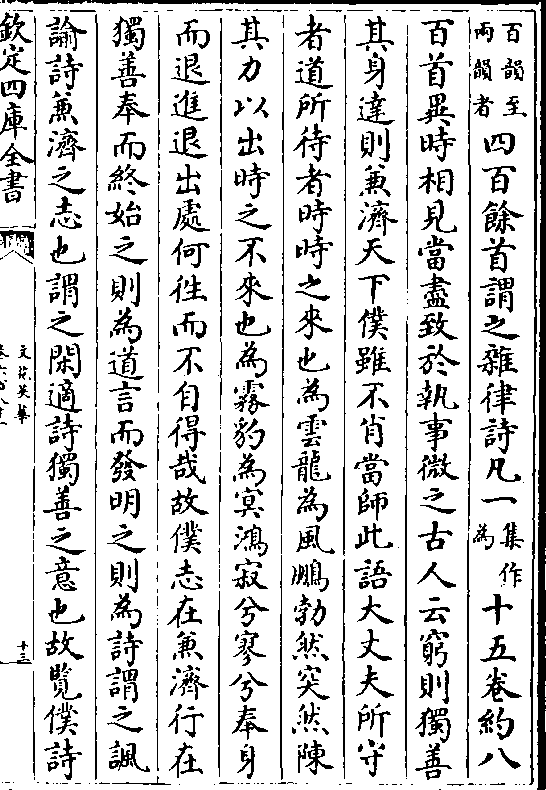 百韻至兩韻者四百餘首謂之雜律詩凡一集作為十五卷約八
百首異時相見當盡致於執事微之古人云窮則獨善
其身達則兼濟天下僕雖不肖當師此語大丈夫所守
者道所待者時時之來也為雲龍為風鵬勃然突然陳
其力以出時之不來也為霧豹為冥鴻寂兮寥兮奉身
而退進退出處何徃而不自得哉故僕志在兼濟行在
獨善奉而終始之則為道言而發明之則為詩謂之諷
諭詩兼濟之志也謂之閑適詩獨善之意也故覽僕詩
欽定四庫全書
文苑英華
十三